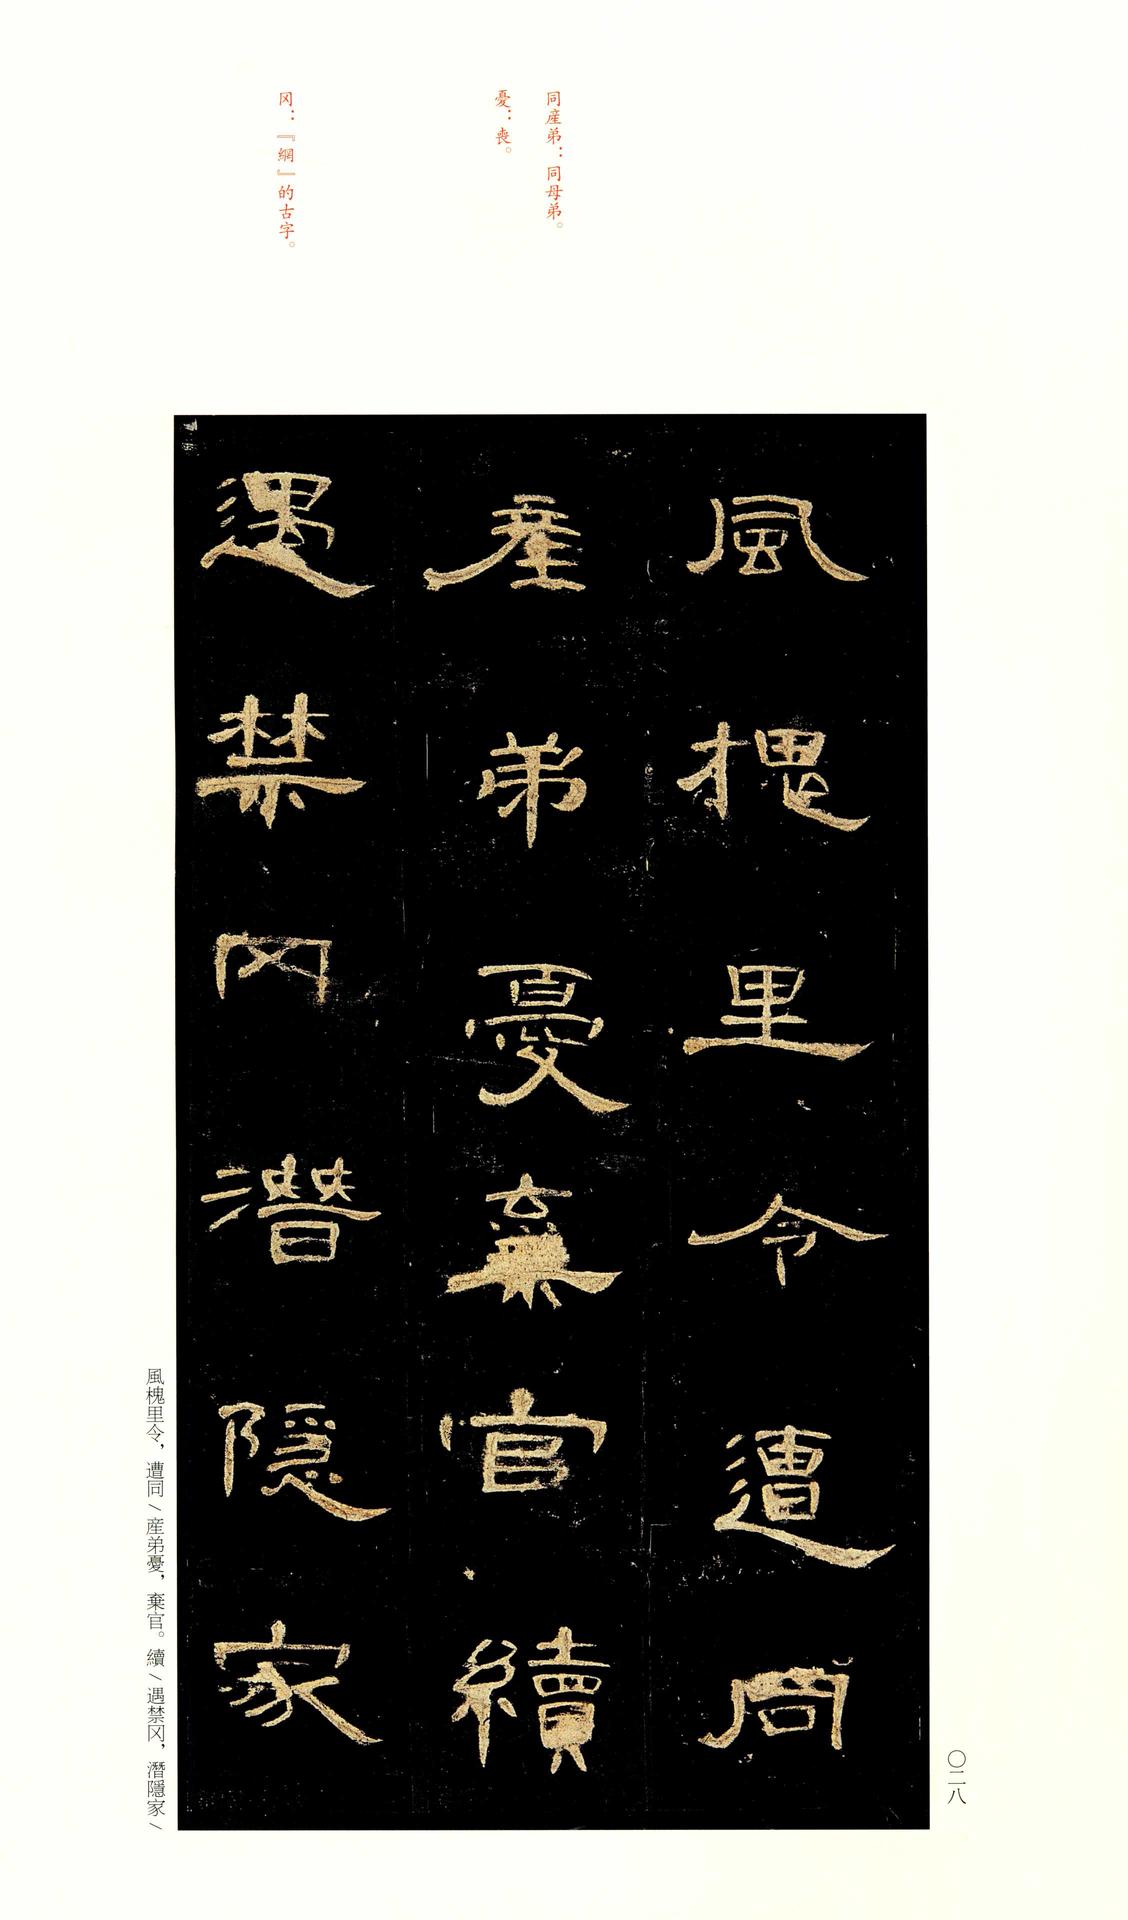 同産弟：同母弟。
憂：喪。
冈：『網』的古字。
風槐里令遭同
産弟憂棄官續
遇禁冈潛隱家
風槐里令，遭同／産弟憂，棄官。續／遇禁冈，潛隱家／
〇二八